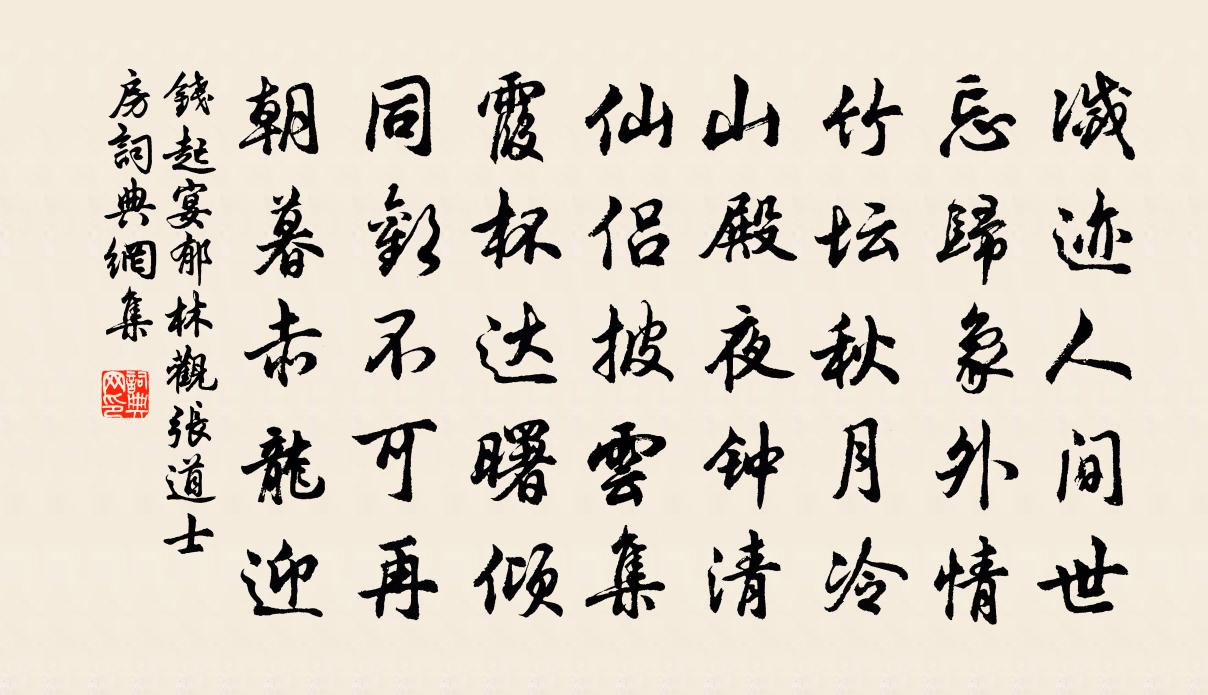 滅迹人间世
忘歸象外情
竹坛秋月冷
山殿夜钟清
仙侣披雲集
霞杯达曙倾
同歡不可再
朝暮赤龍迎
錢起宴郁林觀張道士
房詞典網集
詞典
网印